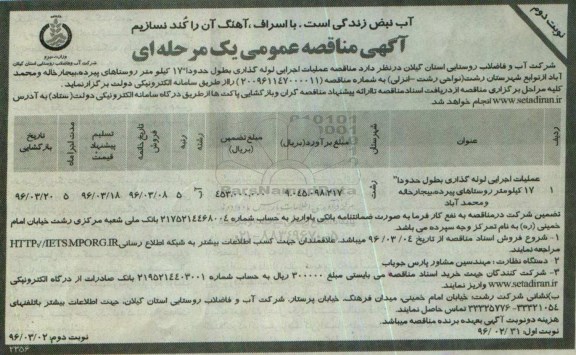 نوبت دوم
آب نبض زندگی است . با اسراف ، آهنگ آن را کُند نسازیم
آگهی مناقصه عمومی یک مرحله ای
وزارت نیرو
شرکت آب و فاضلاب روستایی استان گیلان
شرکت آب و فاضلاب روستایی استان گیلان در نظر دارد مناقصه عملیات اجرایی لوله گذاری بطول حدودا" ۱۷ کیلو متر روستاهای پیرده،بیجارخاله و محمد
آباد از توابع شهرستان رشت(نواحی رشت -انزلی) به شماره مناقصه (۲۰۰۹۶۱۱۴۷۰۰۰۰۱۱) را از طریق سامانه الکترونیکی دولت برگزار نماید .
کلیه مراحل برگزاری مناقصه از دریافت اسناد مناقصه تا ارائه پیشنهاد مناقصه گران و بازگشایی پاکت ها از طریق درگاه سامانه الکترونیکی دولت( ستاد) به آدرس
www.setadiran.ir انجام خواهد شد.
ردیف عنوان شهرستان مبلغ برآورد(بریال) مبلغ تضمین (بریال) رشته رتبه تاریخ خاتمه فروش تسلیم پیشنهاد قیمت مدت اجرا ماه تاریخ بازگشایی
۱ عملیات اجرایی لوله گذاری بطول حدودا" ۱۷ کیلومتر روستاهای پیرده،بیجارخاله و محمد آباد رشت ۹.۰۴۵.۰۹۸.۲۱۷ آب ۵ ۹۶/۰۳/۰۸ ۹۶/۰۳/۱۸ ۵ ۹۶/۰۳/۲۰
تضمین شرکت در مناقصه به نفع کار فرما به صورت ضمانتنامه بانکی یا واریز به حساب شماره ۲۱۷۵۲۱۴۴۶۸۰۰۴ بانک ملی شعبه مرکزی رشت خیابان امام
خمینی (ره) به نام تمرکز وجوه سپرده می باشد.
۱- شروع فروش اسناد مناقصه از تاریخ ۹۶/۰۳/۰۴ میباشد. علاقمندان جهت کسب اطلاعات بیشتر به شبکه اطلاع رسانی HTTP//IETS.MPORG.IR
مراجعه نمایند.
۲- دستگاه نظارت: مهندسین مشاور پارس جویاب
۳- شرکت کنندگان جهت خرید اسناد مناقصه می بایستی مبلغ ۳۰۰۰۰۰ ریال به حساب شماره ۲۱۹۵۲۱۴۴۰۳۰۰۱ بانک صادرات از درگاه الکترونیکی
www.setadiran.ir واریز نمایند.
ب)نشانی شرکت: رشت، خیابان امام خمینی، میدان فرهنگ، خیابان پرستار، شرکت آب و فاضلاب روستایی استان گیلان. جهت اطلاعات بیشتر با تلفنهای
۳۳۳۲۱۰۵۴- ۳۳۳۲۵۷۷۶ تماس حاصل نمایند.
هزینه دو نوبت آگهی بعهده برنده مناقصه میباشد.
نوبت اول: ۹۶/۰۲/۳۱
نوبت دوم: ۹۶/۰۳/۰۲
۲۳۵۶